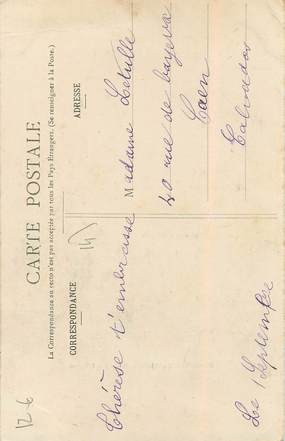 CARTE POSTALE
La Correspondance au recto n'est pas acceptée par tous les Pays Etrangers. (Se renseigner à la Poste.)
CORRESPONDANCE
ADRESSE
Thérèse t'embrasse
Le 1 Septembre
Madame Letulle
40 rue de bayeux
Caen
Calvados